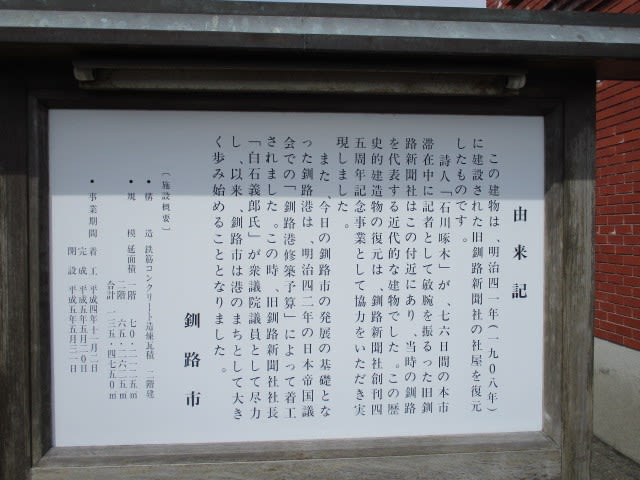 由来記
この建物は、明治四一年(一九〇八年)
に建設された旧釧路新聞社の社屋を復元
したものです。
詩人「石川啄木」が、七六日間の本市
滞在中に記者として敏腕を振るった旧釧
路新聞社はこの付近にあり、当時の釧路
を代表する近代的な建物でした。この歴
史的建造物の復元は、釧路新聞社創刊四
五周年記念事業として協力をいただき実
現しました。
また、今日の釧路市の発展の基礎とな
った釧路港は、明治四二年の日本帝国議
会での「釧路港修築予算」によって着工
されました。この時、旧釧路新聞社社長
「白石義郎氏」が衆議院議員として尽力
し、以来、釧路市は港のまちとして大き
く歩み始めることとなりました。
釧路市
〔施設概要〕
•構造 鉄筋コンクリート造煉瓦積 二階建
•規模 延面積 一階 七〇・二二二五㎡
二階 六五・六二二五㎡
合計 一三五・四七五〇㎡
•事業期間 着工 平成四年十一月二日
完成 平成五年五月一〇日
開設 平成五年五月二一日